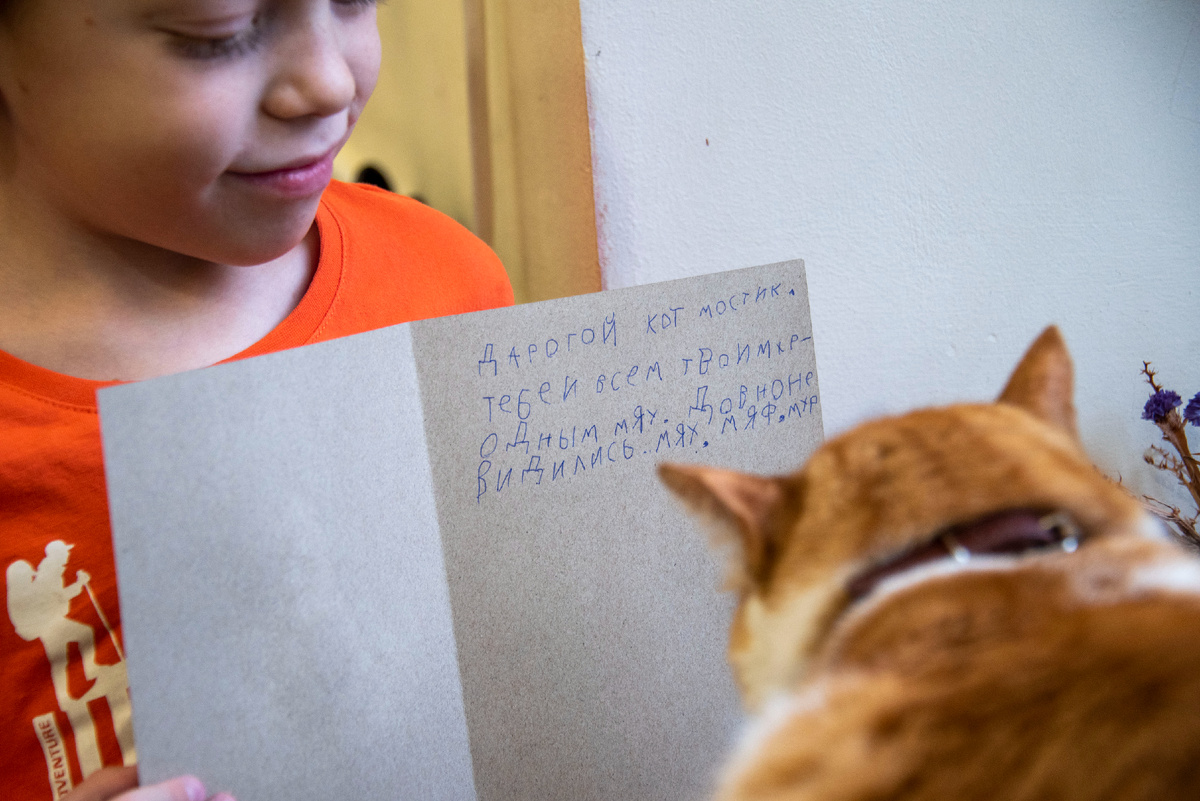 ДАРОГОЙ КОТ МОСТИК.
ТЕБЕ И ВСЕМ ТВОИМ ХР-
ОДНЫМ МЯХ. ДОВНО НЕ
ВИДИЛИСЬ. МЯХ. МЯФ. МХР
VENTURE